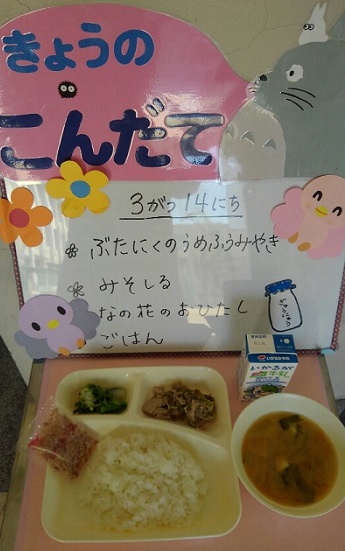 きょうの
こんだて
3がつ14にち
ぶたにくのうめふうみやき
みそしる
なの花のおひたし
ごはん
ぎゅうにゅう
いかるが
牛乳